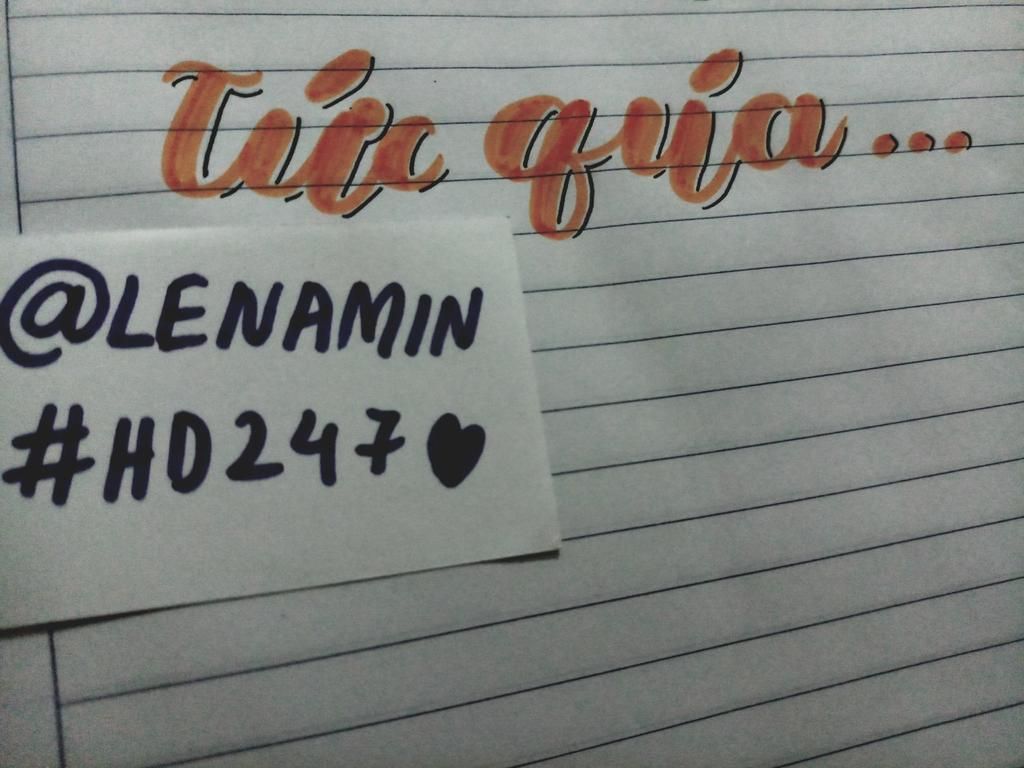 Tức qúa...
@LENAMIN
#HD247♥